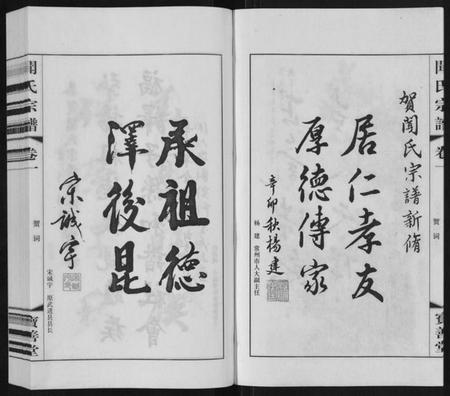 賀闻氏宗譜新脩
居仁孝友
厚德傳家
辛卯秋楊建
杨建 常州市人大副主任
闻氏宗譜
卷一
贺词
寶善堂
承祖德
澤後昆
宋誠宇
宋诚宇 原武进县县长
闻氏宗譜
卷一
贺词
寶善堂